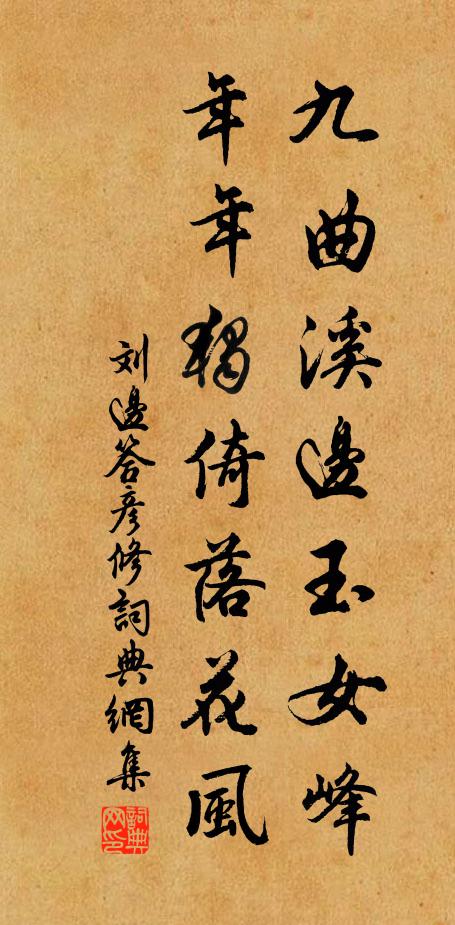 九曲溪邊玉女峰
年年獨倚落花風
刘邊答彦修詞典網集
詞典网印